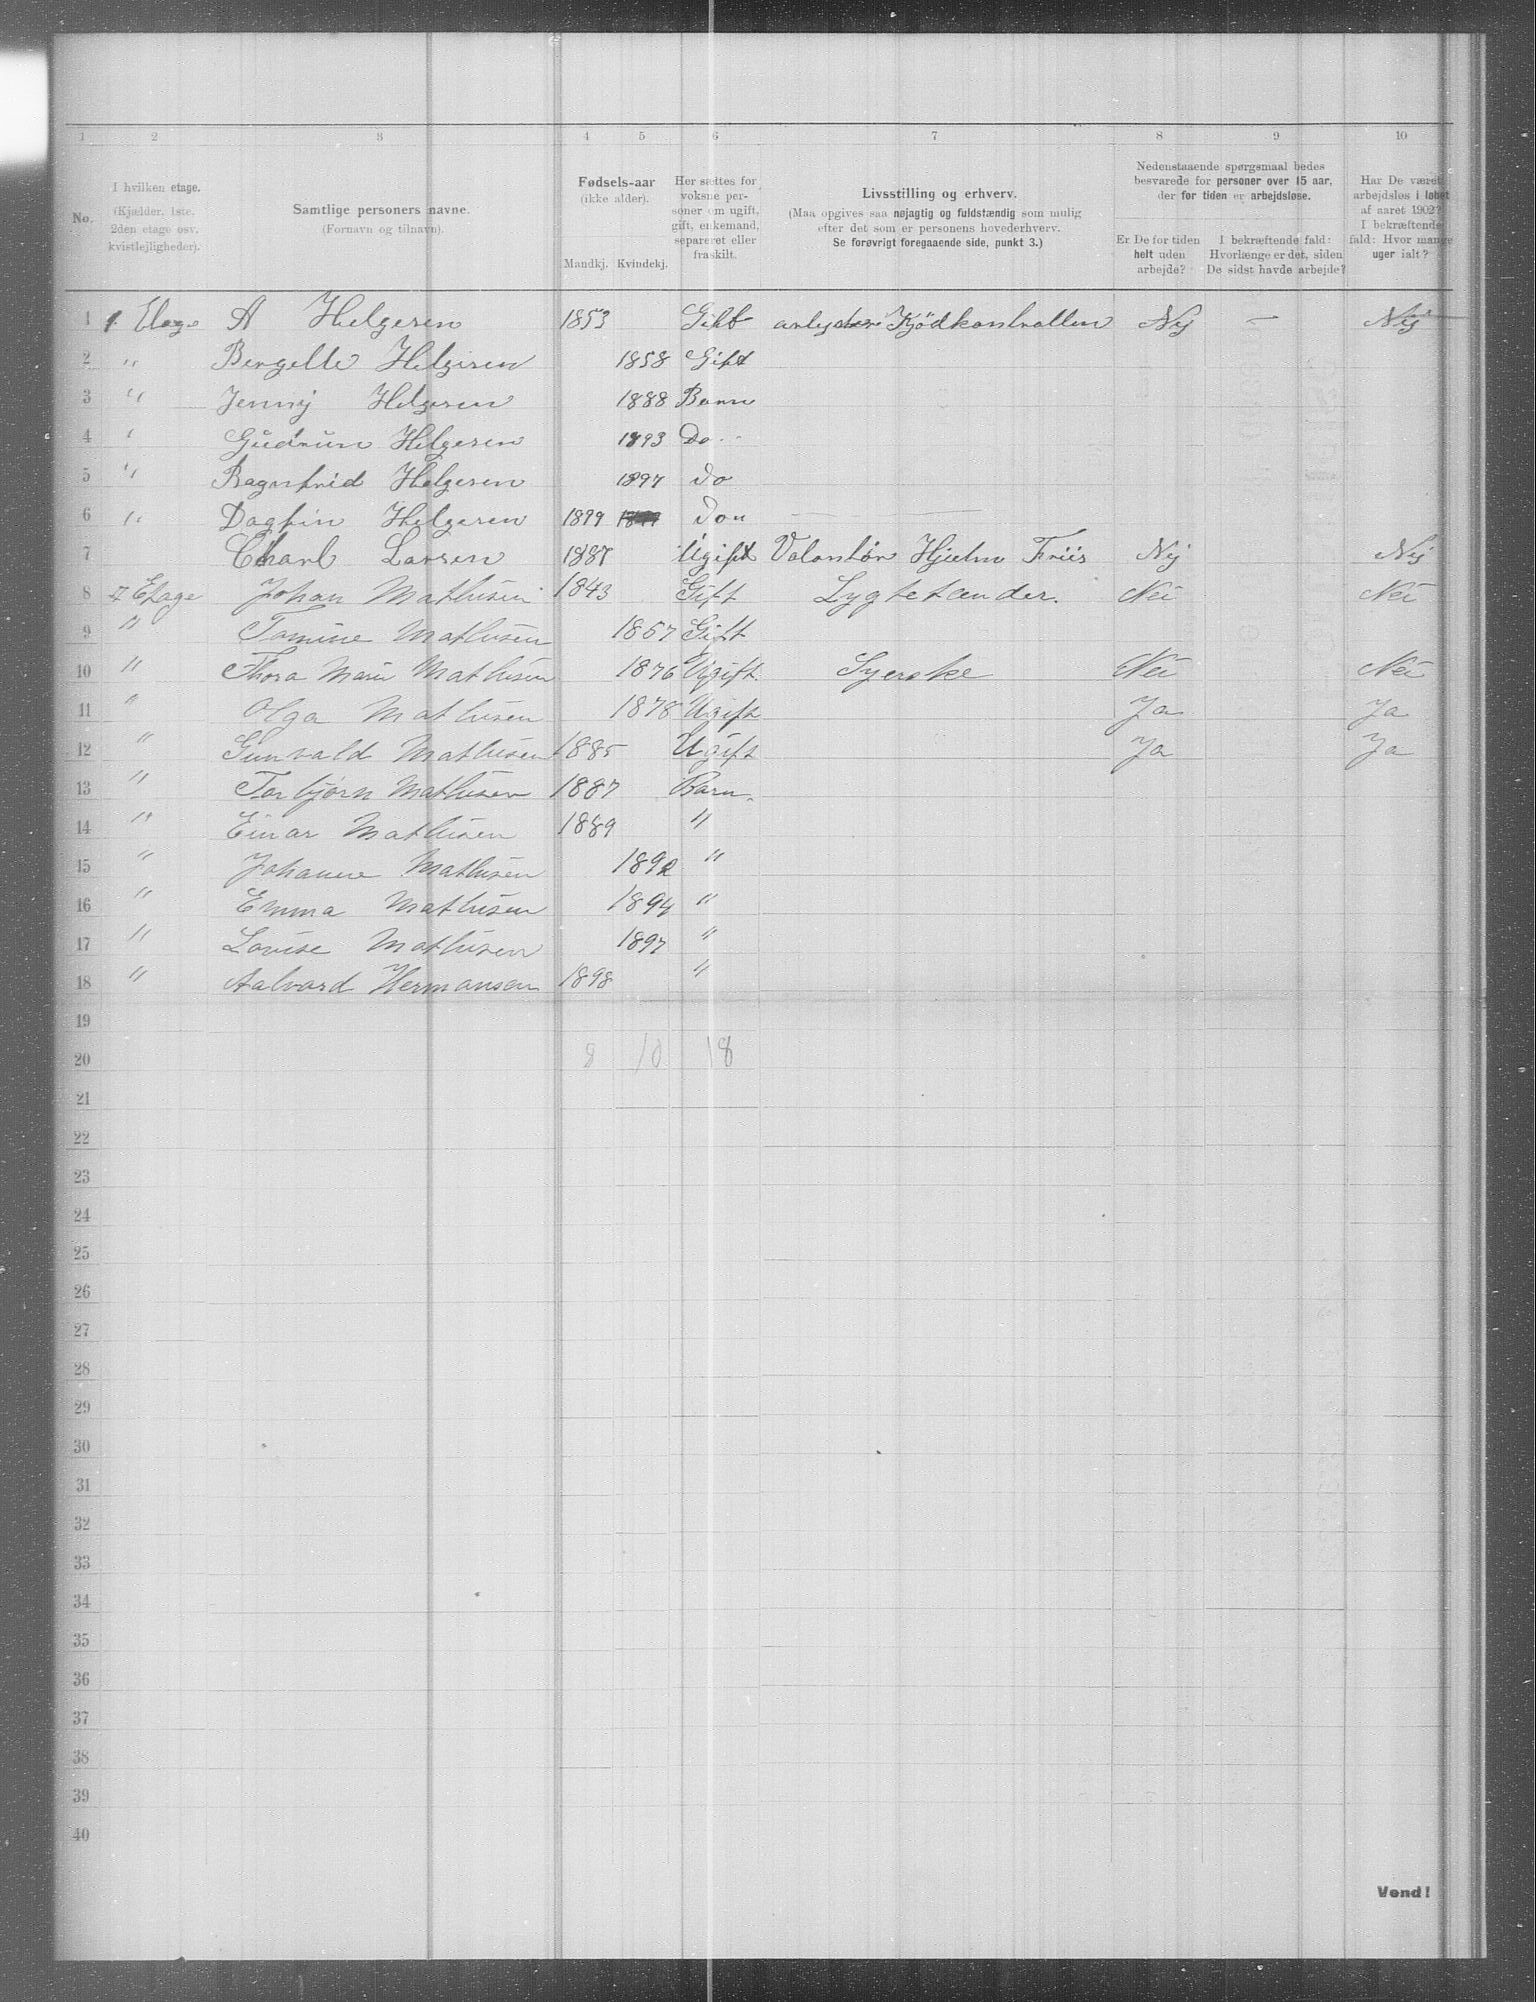 1 2 3 4 5 6 7 8 9 10
No.
I hvilken etage.
(Kjælder, 1ste.
2den etage osv.
kvistlejligheder).
Samtlige personers navne.
(Fornavn og tilnavn).
Fødsels-aar
(ikke alder).
Mandkj. Kvindekj.
Her sættes for
voksne per-
soner om ugift,
gift, enkemand,
separeret eller
fraskilt.
Livsstilling og erhverv.
(Maa opgives saa nøjagtig og fuldstændig som mulig
efter det som er personens hovederhverv.
Se forøvrigt foregaaende side, punkt 3.)
Nedenstaaende spørgsmaal bedes
besvarede for personer over 15 aar,
der for tiden er arbejdsløse.
Er De for tiden
helt uden
arbejde?
I bekræftende fald:
Hvorlænge er det, siden
De sidst havde arbejde?
Har De været
arbejdsløs i løbet
af aaret 1902?
I bekræftende
fald: Hvor mange
uger ialt?
1 1. Etage A Helgesen 1853 Gift Kjödkontrollen Nej — Nej
2 " Bergette Helgesen 1858 Gift
3 " Jenny Helgesen 1888 Barn
4 " Gudrun Helgesen 1893 Do
5 " Ragnfrid Helgesen 1897 Do
6 " Dagfin Helgesen 1899 Do "
7 Charl Larsen 1887 Ugift Volontör Hjelm Friis Nej Nej
8 2 Etage Johan Mathisen 1843 Gift Lygtetænder. Nei Nei
9 " Tomine Mathisen 1857 Gift
10 " Thora Marie Mathisen 1876 Ugift. Syerske Nei Nei
11 " Olga Mathisen 1878 Ugift Ja Ja
12 " Gunvald Mathisen 1885 Ugift Ja Ja
13 " Torbjørn Mathisen 1887 Barn.
14 " Einar Mathisen 1889 "
15 " Johanne Mathisen 1892 "
16 " Emma Mathisen 1894 "
17 " Lovise Mathisen 1897 "
18 " Aalvard Hermansen 1898 "
19
20 8 10 18
21
22
23
24
25
26
27
28
29
30
31
32
33
34
35
36
37
38
39
40
Vend!